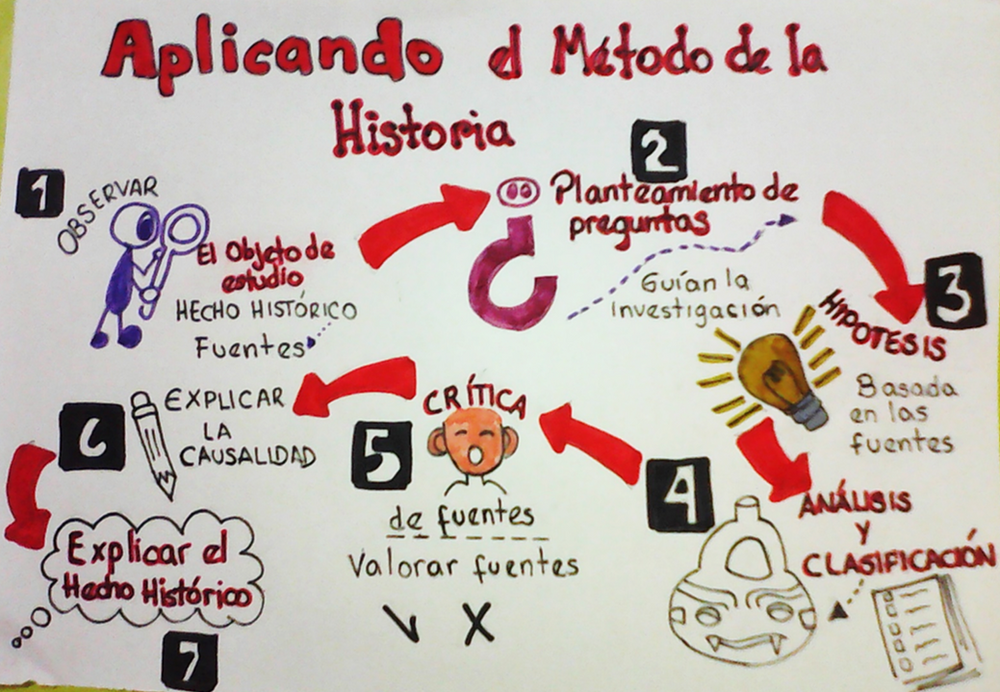 Aplicando el Método de la
Historia
1
OBSERVAR
El Objeto de
estudio
HECHO HISTÓRICO
Fuentes
2
Planteamiento de
preguntas
¿
Guían la
investigación
3
HIPOTESIS
Basada
en las
fuentes
4
ANÁLISIS
Y
CLASIFICACIÓN
5
CRÍTICA
de fuentes
Valorar fuentes
✓ X
6
EXPLICAR
LA
CAUSALIDAD
Explicar el
Hecho Histórico
7